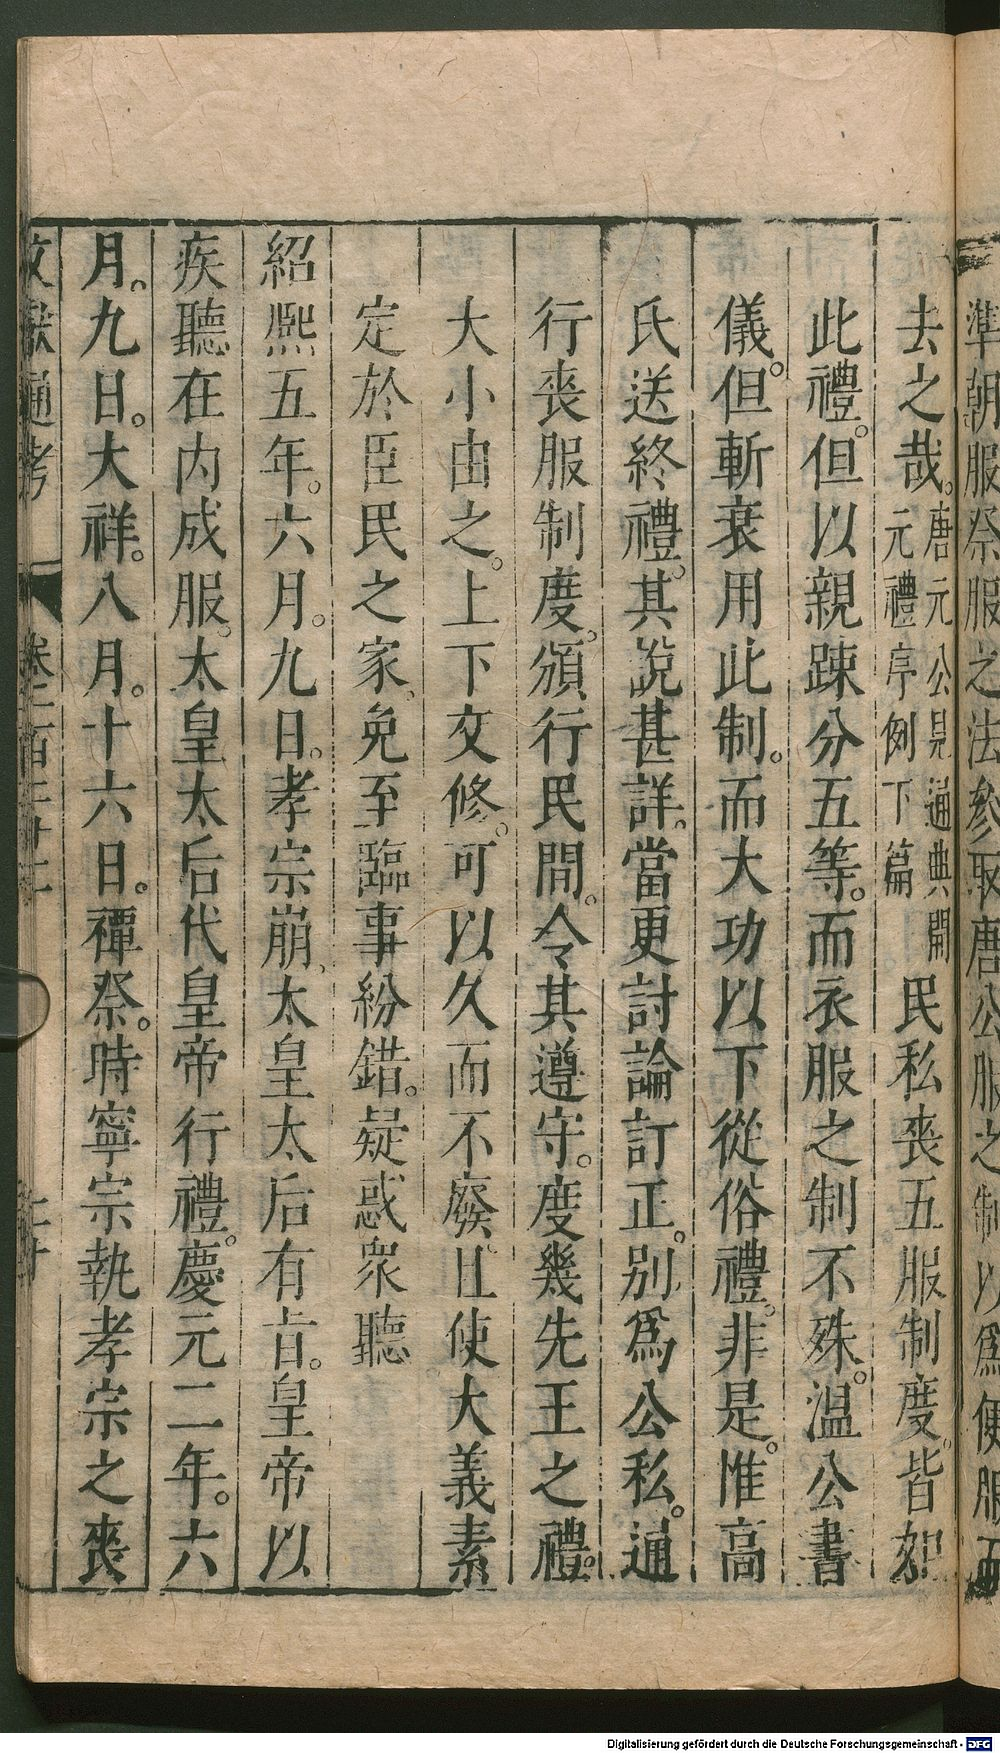 準朝服祭服之法參取唐公服之制以為便服而
去之哉。唐元公見通典開元禮序例下篇民私喪五服制度。皆如
此禮。但以親踈分五等。而衣服之制不殊。溫公書
儀。但斬衰用此制。而大功以下從俗禮。非是。惟高
氏送終禮。其說甚詳。當更討論訂正。別為公私。通
行喪服制度。頒行民間。令其遵守。度幾先王之禮。
大小由之。上下交修。可以久而不廢。且使大義素
定於臣民之家。免至臨事紛錯。疑惑眾聽
紹熙五年。六月。九日。孝宗崩。太皇太后有旨。皇帝以
疾聽在內成服。太皇太后代皇帝行禮。慶元二年。六
月。九日。大祥。八月。十六日。禫祭。時寧宗執孝宗之喪
文獻通考
Digitalisierung gefördert durch die Deutsche Forschungsgemeinschaft - DFG